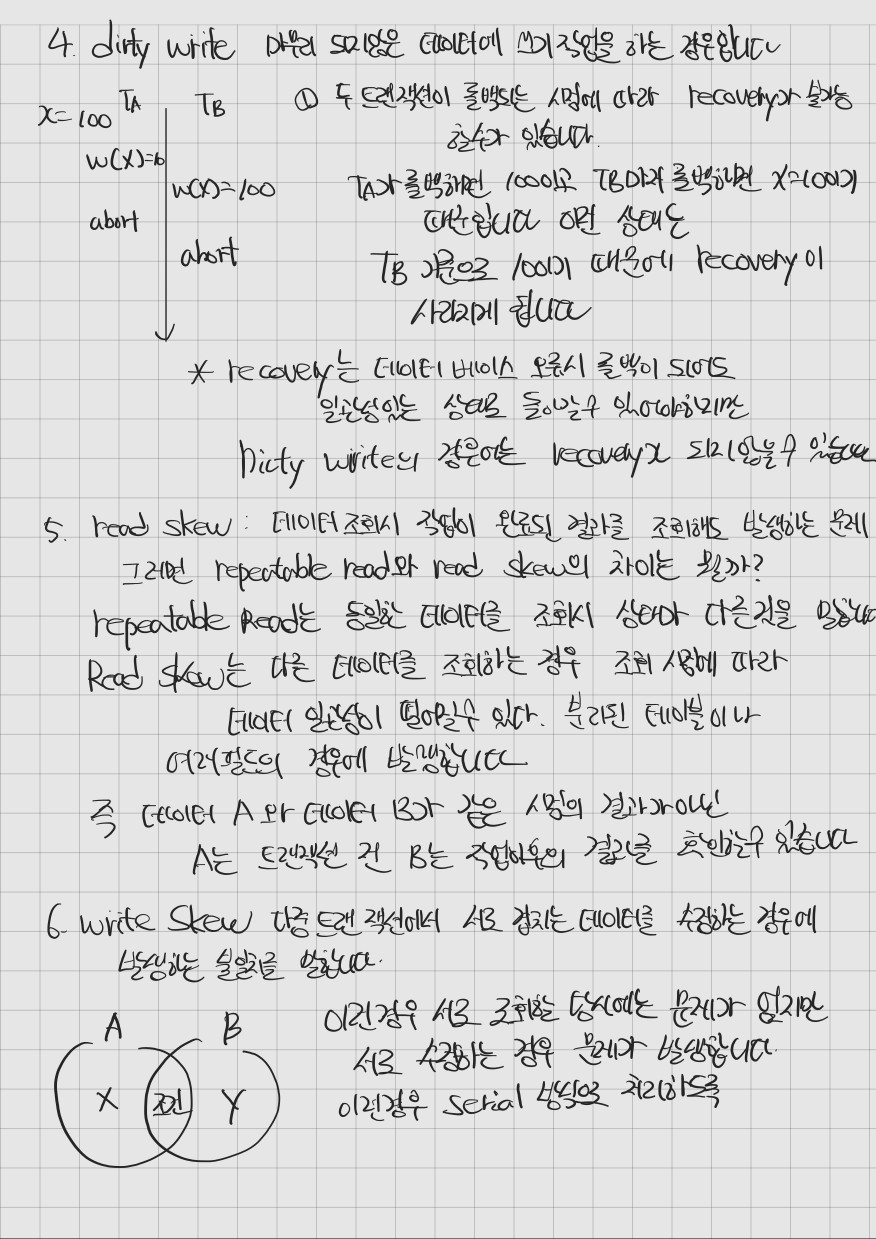 4. dirty write 마무리 되지않은 데이터에 쓰기작업을 하는 경우입니다
x=100 TA TB ① 두 트랜잭션이 롤백되는 시점에 따라 recovery가 불가능
할수가 있습니다.
w(x)=10
w(x)=100 TA가 롤백하면 100이고 TB마저 롤백하면 x=100이기
abort 때문입니다 이런 상태는
abort TB 기준으로 100이기 때문에 recovery이
사라지게 됩니다
* recovery는 데이터 베이스 오류시 롤백이 되어도
일관성있는 상태로 돌아갈수 있어야하지만
Dirty write의 경우에는 recovery가 되지 않을수 있습니다
5. read skew : 데이터 조회시 작업이 완료된 결과를 조회해도 발생하는 문제
그러면 repeatable read와 read skew의 차이는 뭘까?
repeatable Read는 동일한 데이터를 조회시 상이하 다른것을 말합니다
Read skew는 다른 데이터를 조회하는 경우 조회 시점에 따라
데이터 일관성이 떨어질수 있다. 분리된 테이블이나
여러필드의 경우에 발생합니다
즉 데이터 A와 데이터 B가 같은 시점의 결과가아닌
A는 트랜잭션 전 B는 작업이후의 결과를 확인할수 있습니다
6. write Skew 다중 트랜잭션에서 서로 겹치는 데이터를 수정하는 경우에
발생하는 불일치를 말합니다.
A B 이런경우 서로 조회할 당시에는 문제가 없지만
서로 수정하는 경우 문제가 발생합니다.
X 조건 Y 이런경우 serial 방식으로 처리하도록